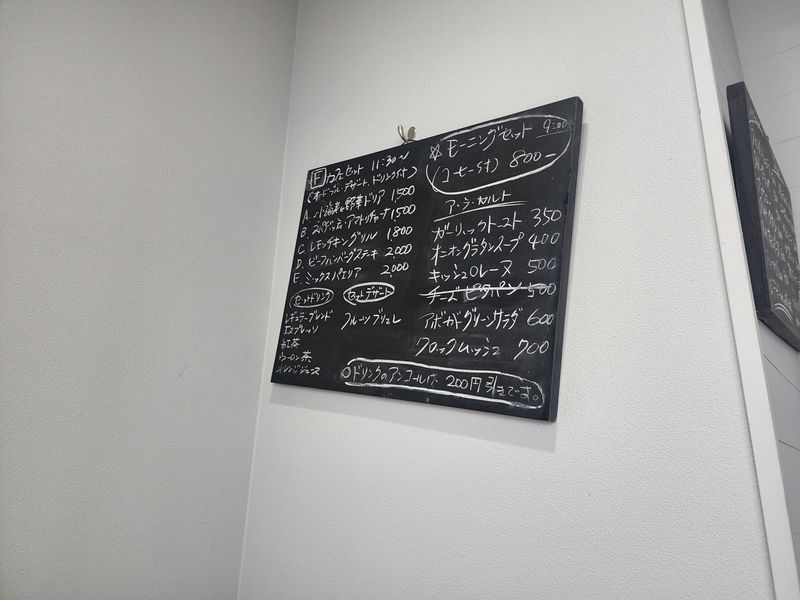 F カフェセット 11:30〜
(オードブル・デザート、ドリンク付)
A. 小海老と野菜ドリア 1,500
B. スパゲッティ・アマトリチャーナ 1,500
C. レモンチキングリル 1,800
D. ビーフハンバーグステーキ 2,000
E. ミックスパエリア 2,000
セットドリンク
レギュラーブレンド
エスプレッソ
紅茶
ウーロン茶
オレンジジュース
セットデザート
フルーツブリュレ
☆ モーニングセット 9:00
(コーヒー付) 800-
ア・ラ・カルト
ガーリックトースト 350
オニオングラタンスープ 400
キッシュロレーヌ 500
チーズピタパン 500
アボカドグリーンサラダ 600
クロックムッシュ 700
○ドリンクのアンコールは 200円引きです。